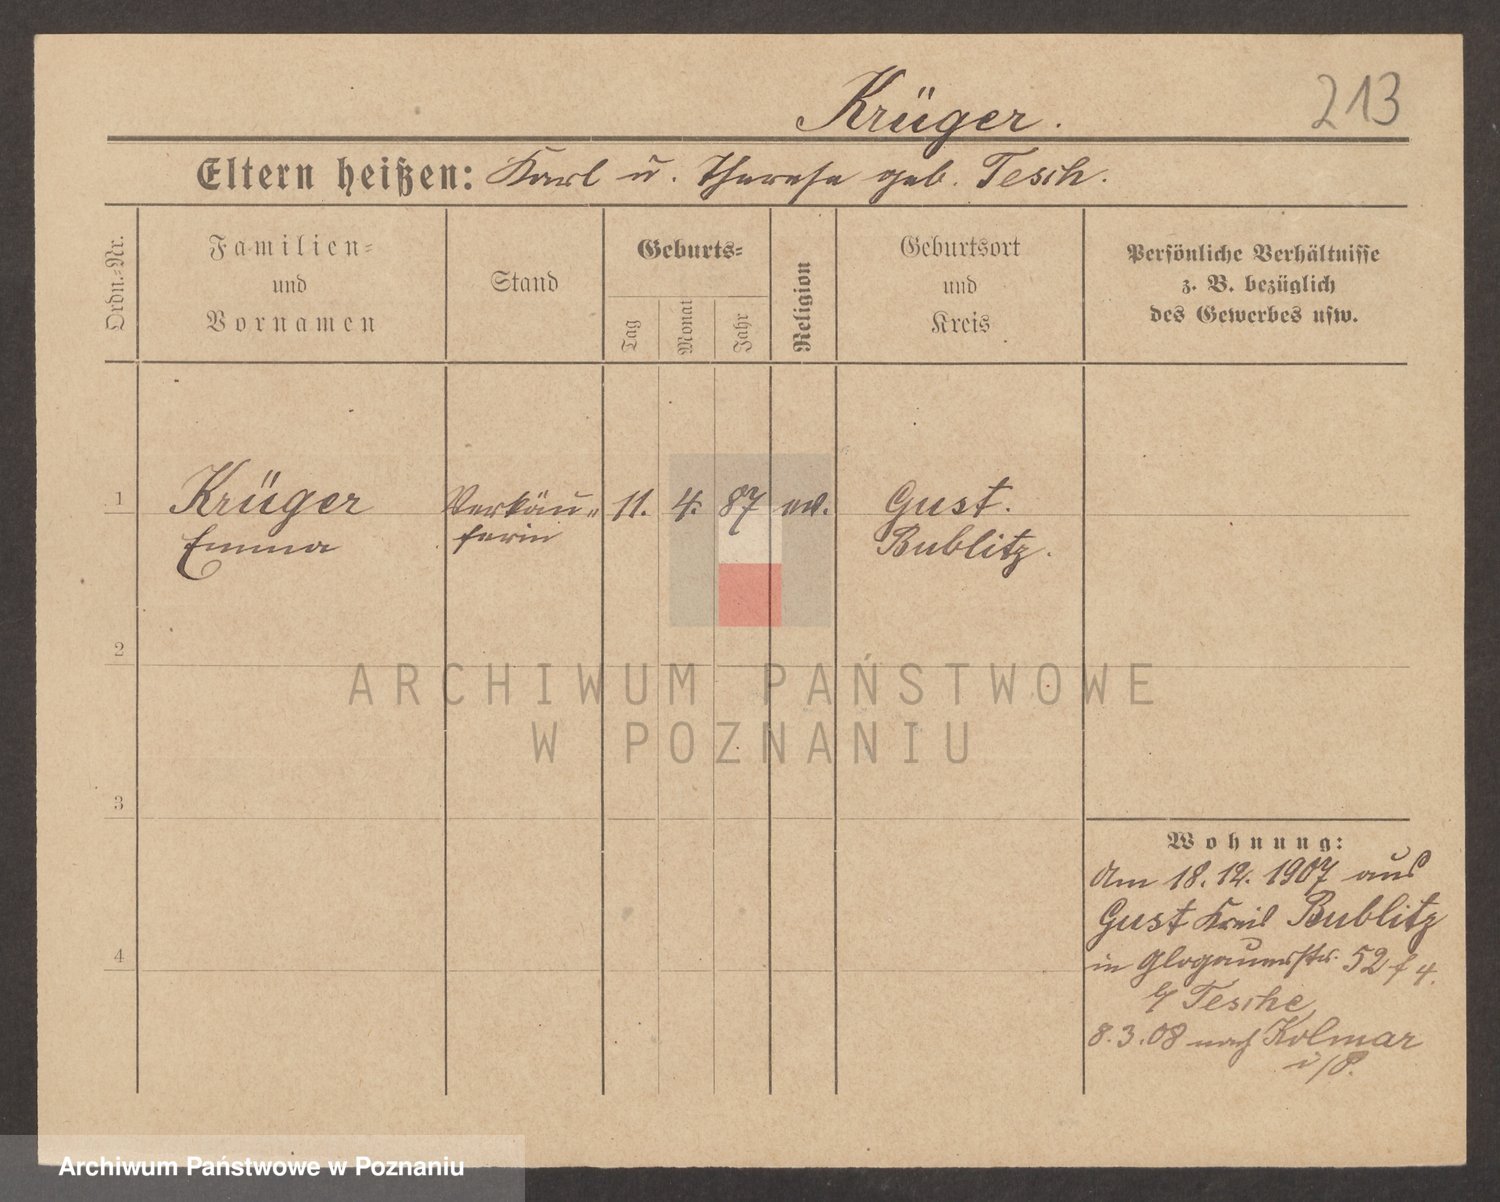 213
Krüger.
Eltern heißen: Karl u. Therese geb. Tesch.
Ordn.-Nr.
Familien-
und
Vornamen
Stand
Geburts-
Tag
Monat
Jahr
Religion
Geburtsort
und
Kreis
Persönliche Verhältnisse
z. B. bezüglich
des Gewerbes usw.
1 Krüger Verkäu- 11. 4. 87 ev. Gust.
Emma ferin Bublitz.
2
ARCHIWUM PAŃSTWOWE
W POZNANIU
3
Wohnung:
Am 18.12.1907 aus
Gust Kreis Bublitz
4
in Glogauerstr. 52 f 4.
b/ Tesche
8.3.08 nach Kolmar
i/P.
Archiwum Państwowe w Poznaniu